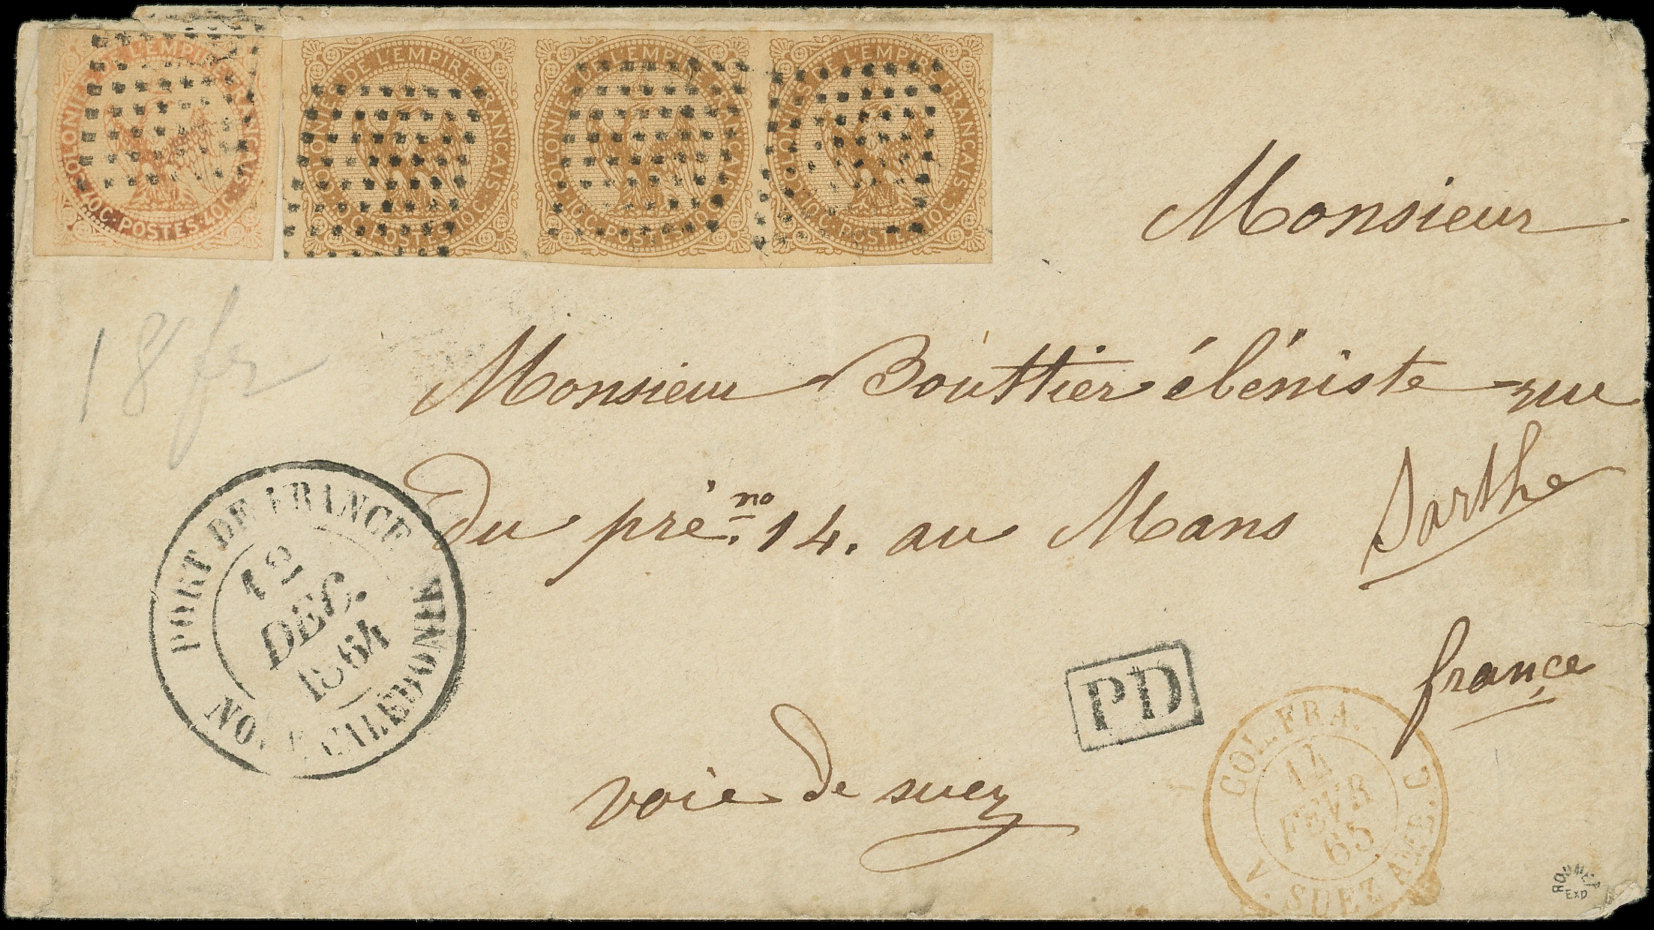 COLONIES DE L'EMPIRE FRANÇAIS 40 C. POSTES 40 C.
COLONIES DE L'EMPIRE FRANÇAIS 10 C. POSTES 10 C.
COLONIES DE L'EMPIRE FRANÇAIS 10 C. POSTES 10 C.
COLONIES DE L'EMPIRE FRANÇAIS 10 C. POSTES 10 C.
Monsieur
18 fr
Monsieur Bouttier ébéniste rue
du pré no 14. au Mans Sarthe
france
PORT DE FRANCE
12
DÉC.
1864
NOUV CALÉDONIE
PD
voie de suez
COL. FRA.
14
FEVR
65
V. SUEZ AMB. C
ROUMET
EXP